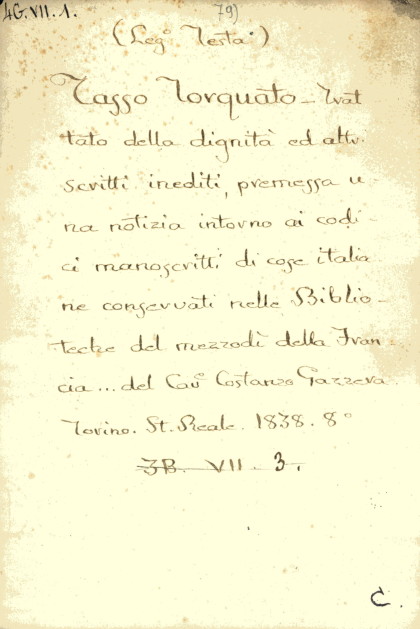 4G.VII.1. 79)
(Leg.° Testa)
Tasso Torquato - Trat
tato della dignità ed altri
scritti inediti, premessa u-
na notizia intorno ai codi-
ci manoscritti di cose italia
ne conservati nelle Biblio-
teche del mezzodì della Fran-
cia ... del Cav.° Costanzo Gazzera
Torino. St. Reale. 1838. 8°
3B. VII. 3.
C.